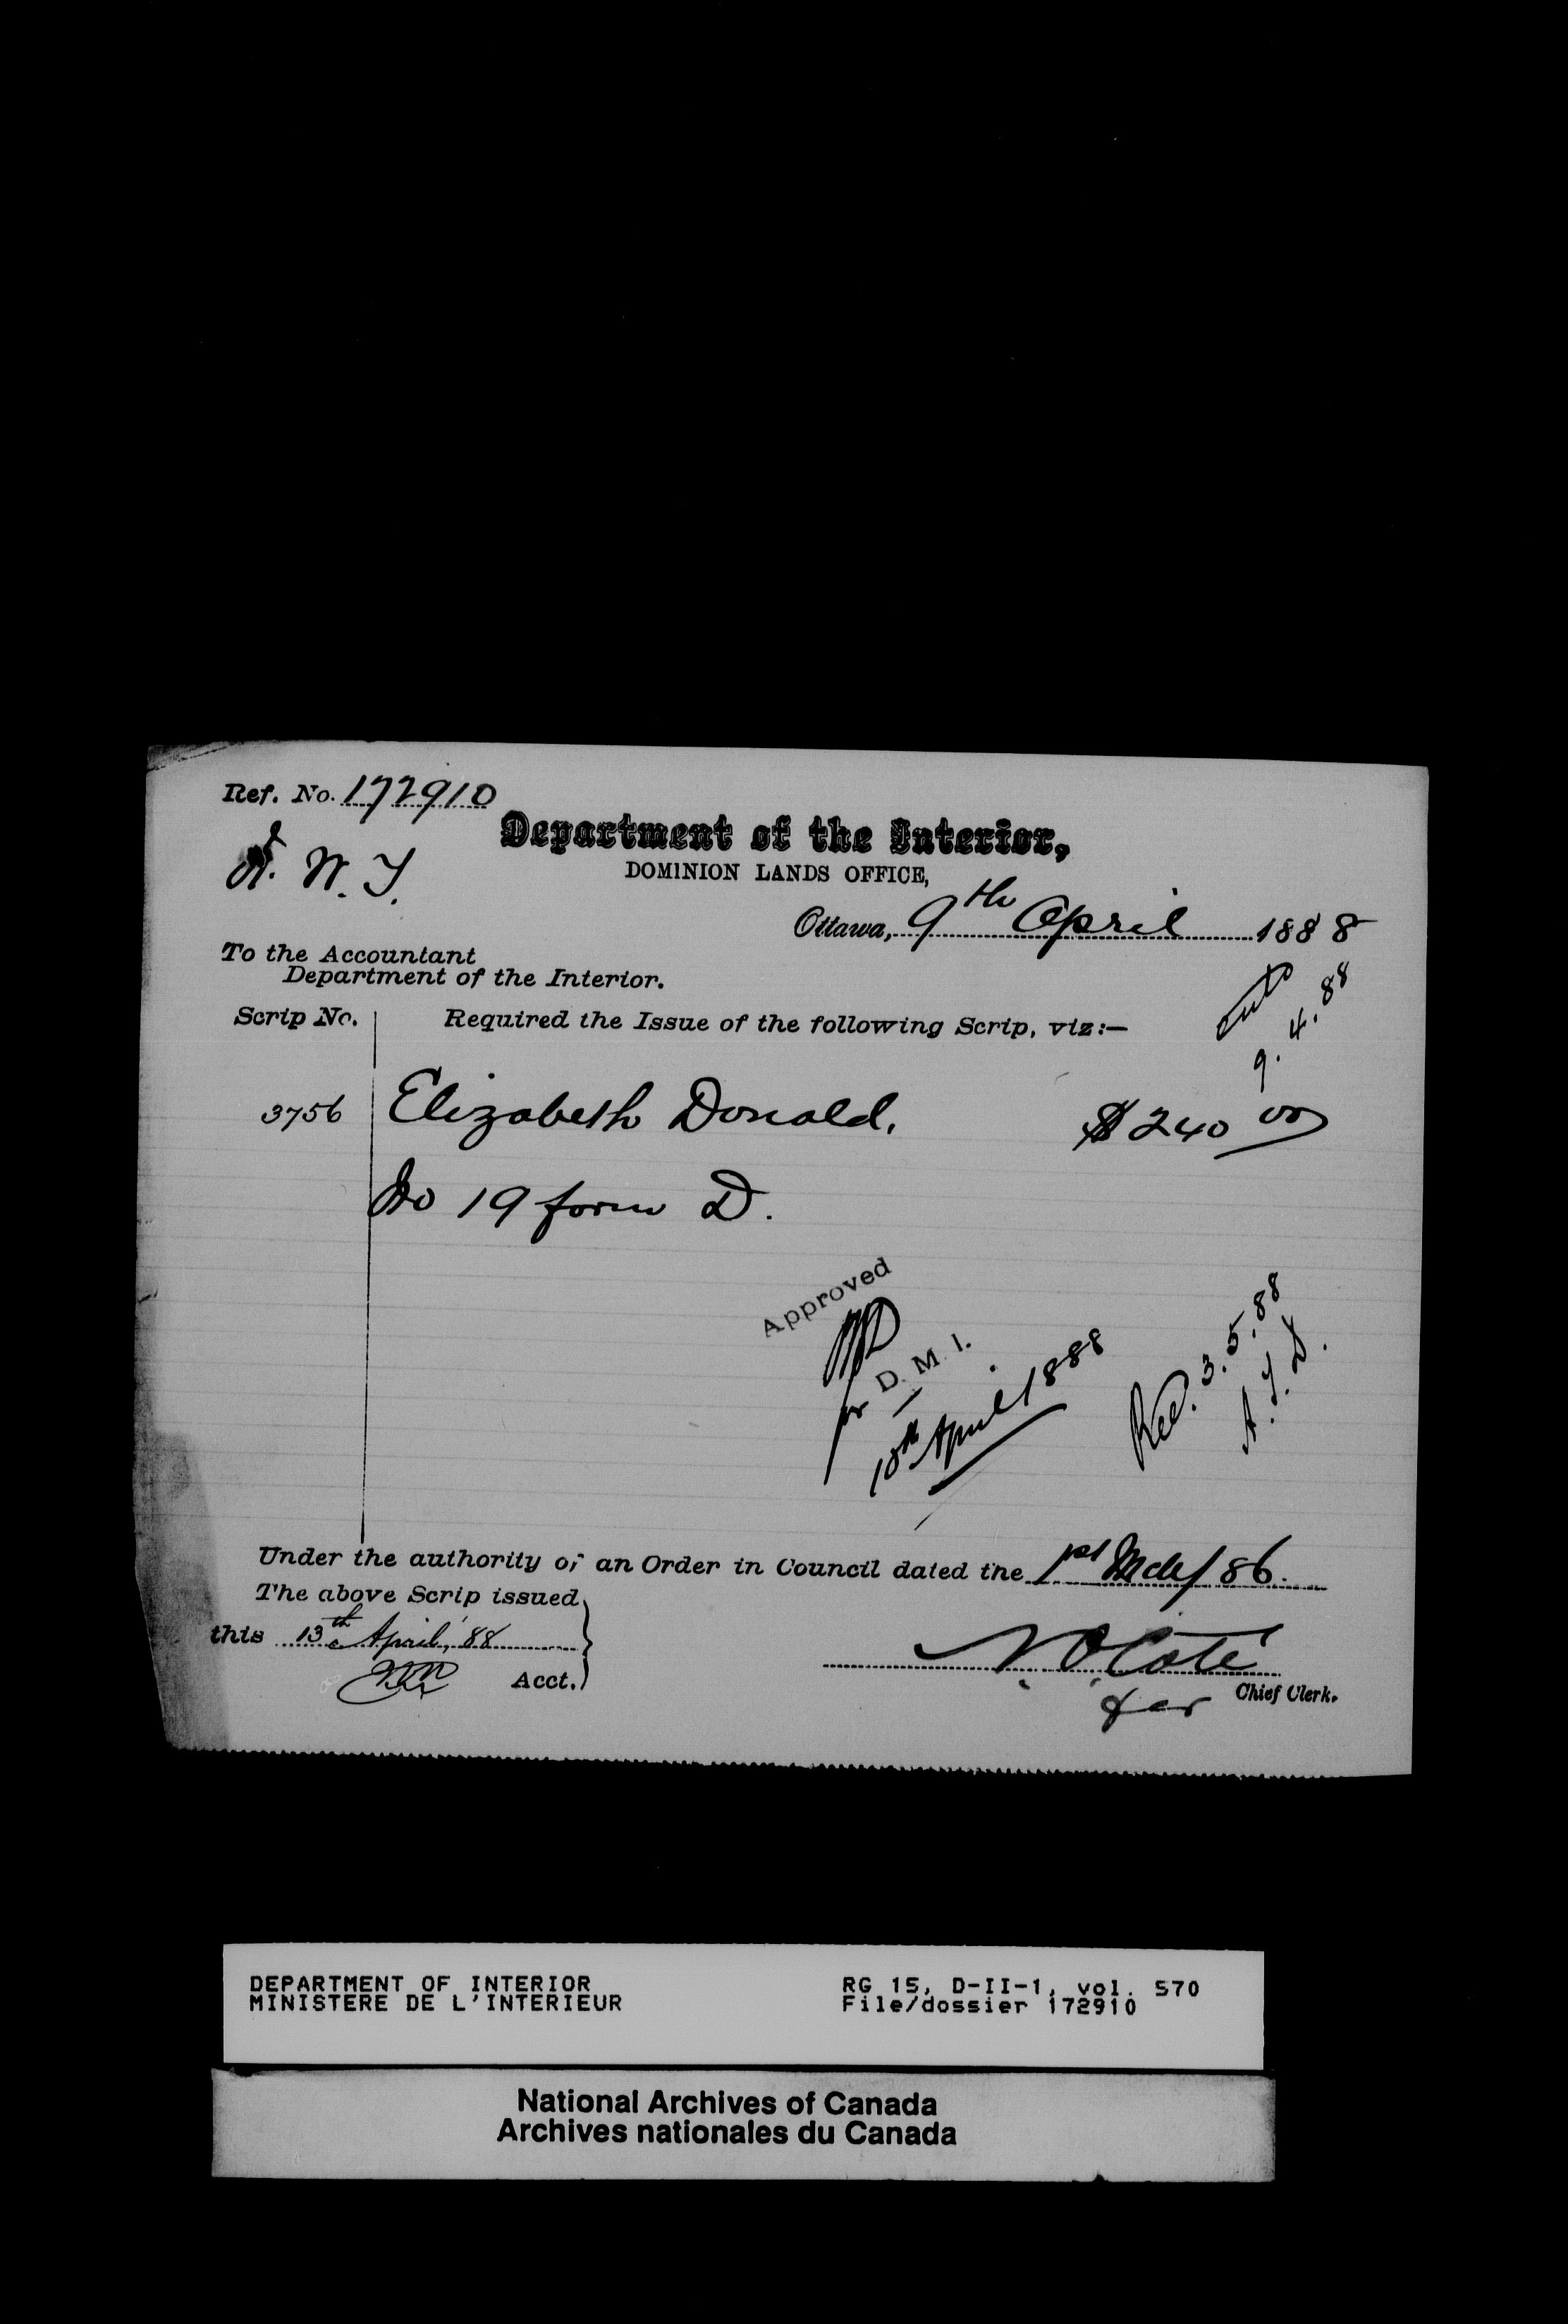 Ref. No. 172910
Department of the Interior,
N. W. T.
DOMINION LANDS OFFICE,
Ottawa, 9th April 1888
To the Accountant
Department of the Interior.
9. 4. 88
Scrip No. Required the Issue of the following Scrip, viz:—
3756 Elizabeth Donald. $240 00
No 19 form D.
Approved
for D. M. I.
10th April 1888
Rec. 3. 5. 88
Under the authority of an Order in Council dated the 1st Mch/86.
The above Scrip issued
this 13th April, '88
Acct.
N. O. Coté
for Chief Clerk.
DEPARTMENT OF INTERIOR RG 15, D-II-1, vol. 570
MINISTERE DE L'INTERIEUR File/dossier 172910
National Archives of Canada
Archives nationales du Canada